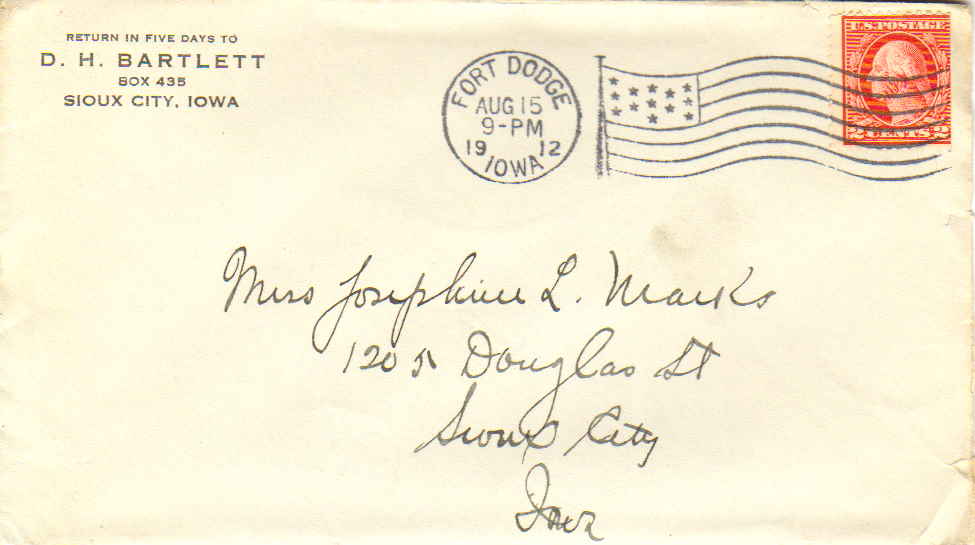 RETURN IN FIVE DAYS TO
D. H. BARTLETT
BOX 435
SIOUX CITY, IOWA
FORT DODGE
AUG 15
9-PM
19 12
IOWA
U.S. POSTAGE
2 CENTS 2
Miss Josephine L. Marks
1205 Douglas St
Sioux City
Iowa